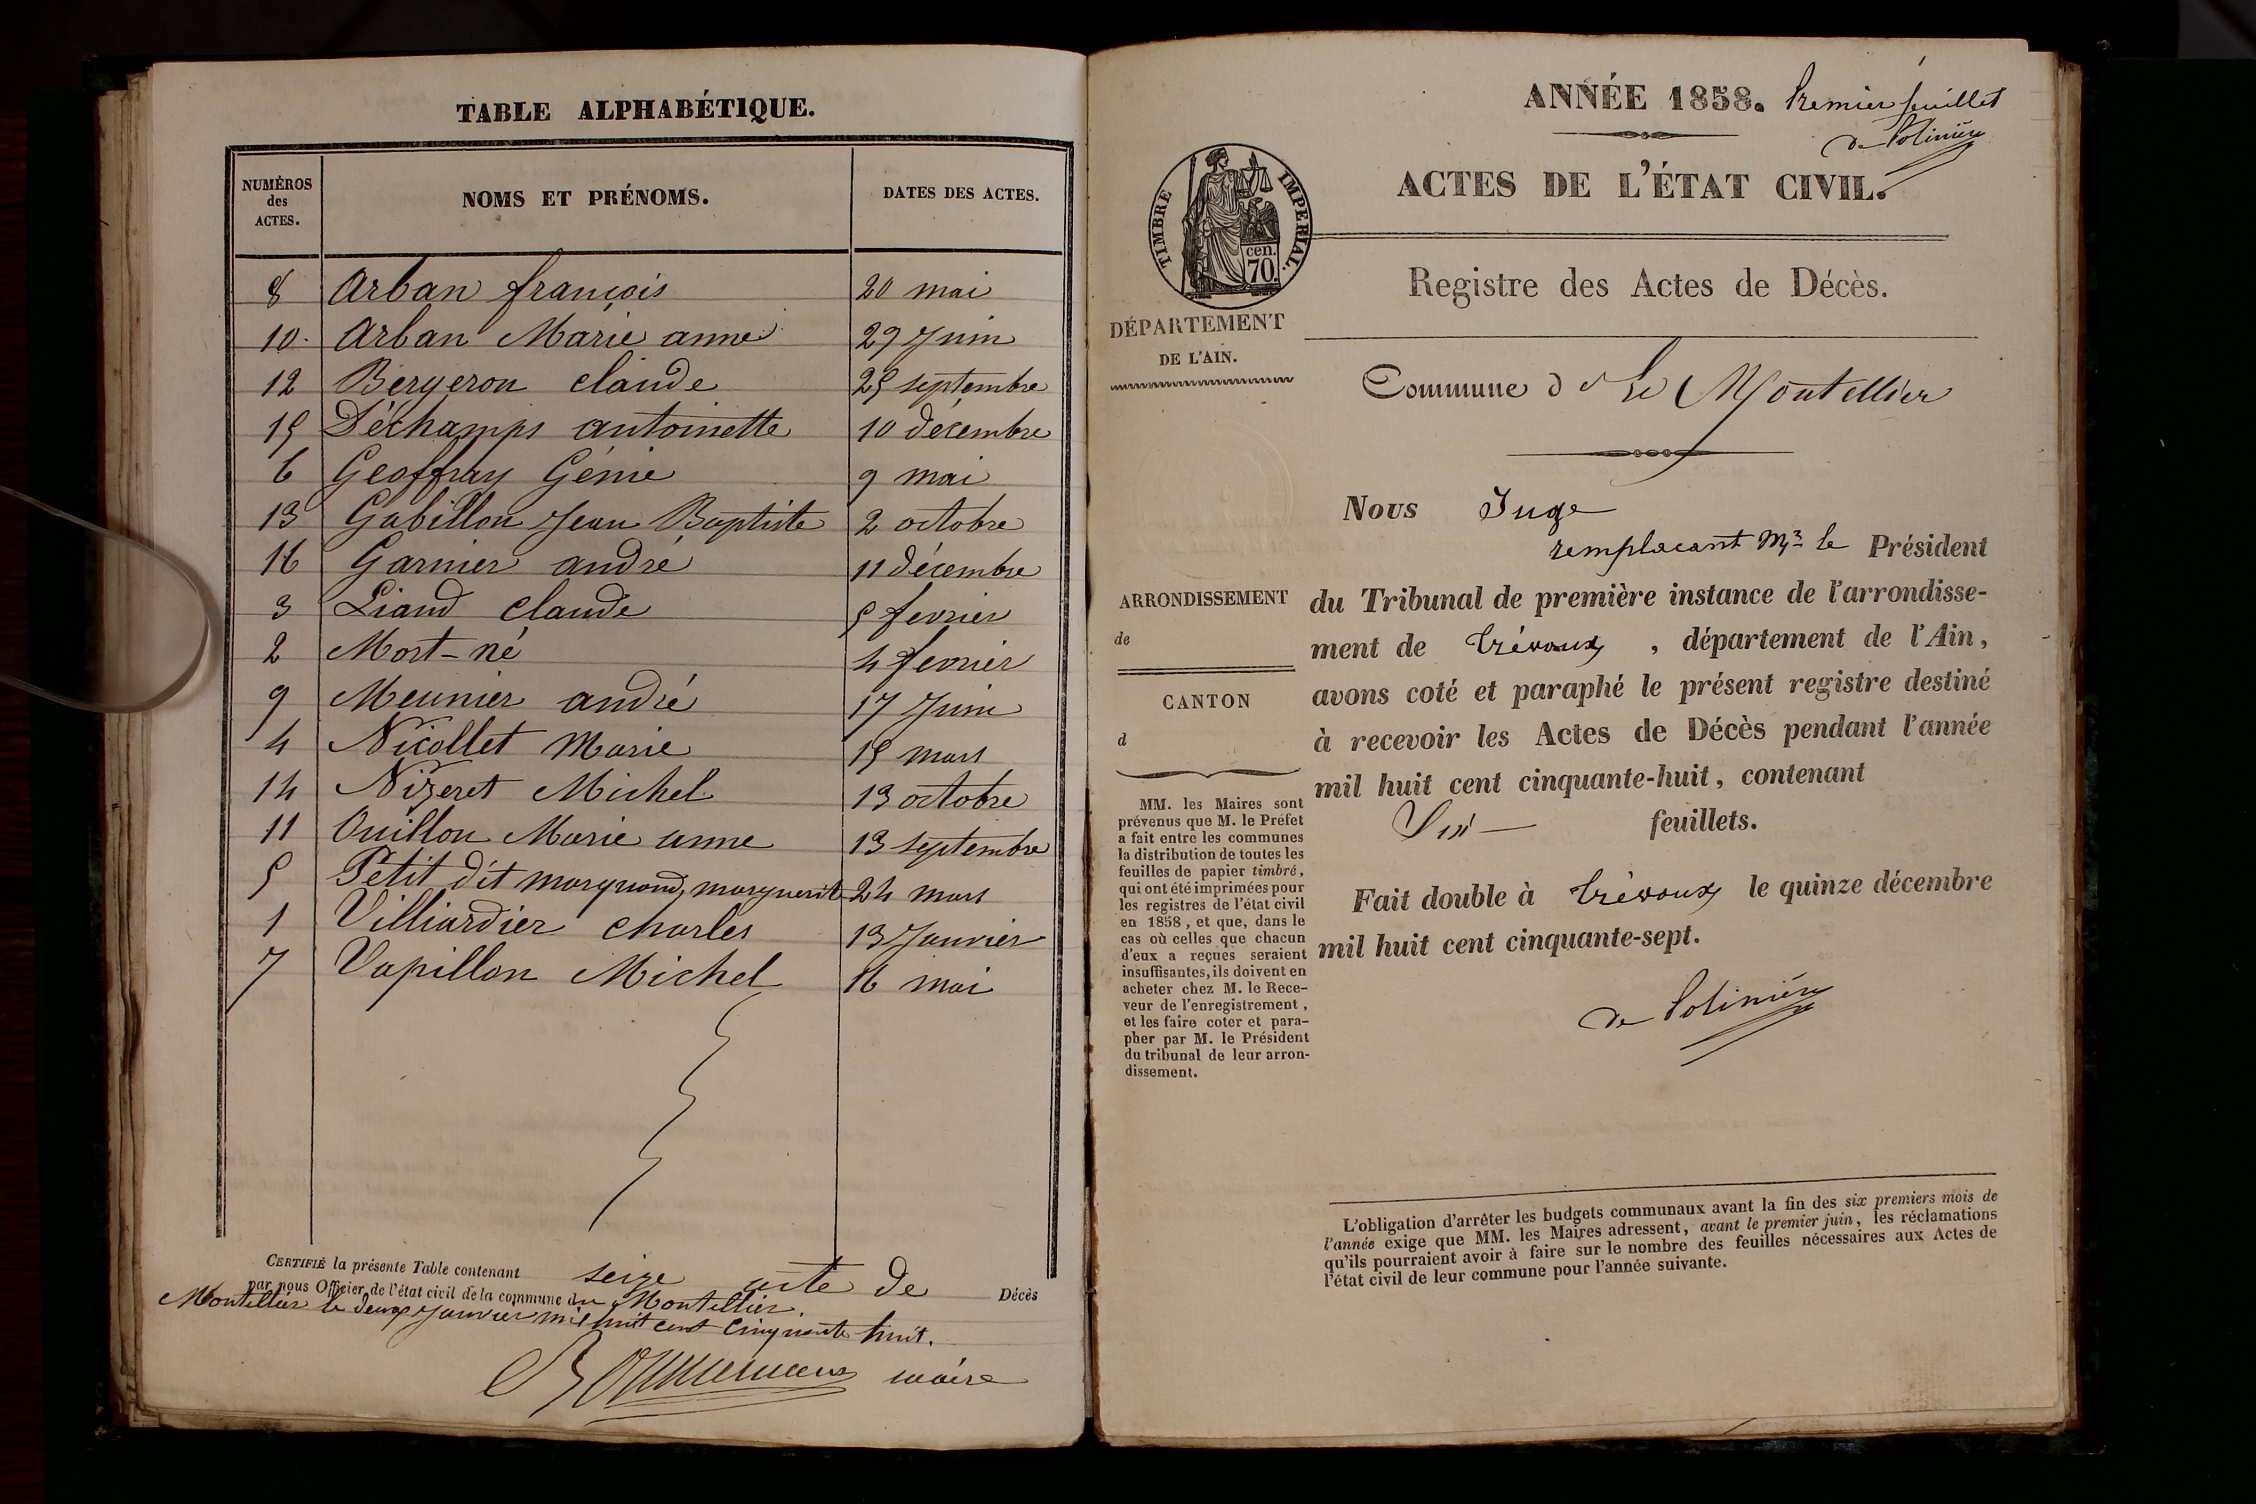 TABLE ALPHABÉTIQUE.
NUMÉROS des ACTES. NOMS ET PRÉNOMS. DATES DES ACTES.
8 Arban françois 20 mai
10. Arban Marie anne 29 Juin
12 Bergeron claude 25 septembre
15 Déchamps antoinette 10 décembre
6 Geoffray Génie 9 mai
13 Gabillon Jean Baptiste 2 octobre
16 Garnier andré 11 décembre
3 Liaud claude 5 fevrier
2 Mort-né 4 fevrier
9 Meunier andré 17 Juin
4 Nicollet Marie 15 mars
14 Nizeret Michel 13 octobre
11 Ouillon Marie anne 13 septembre
5 Petit dit marguerite 24 mars
1 Villiardier charles 13 Janvier
7 Vapillon Michel 16 mai
CERTIFIÉ la présente Table contenant seize acte de Décès
par nous Officier de l'état civil de la commune du Montellier.
Montellier le deux Janvier mil huit cent cinquante huit.
maire
ANNÉE 1858. Premier feuillet
de Polinière
ACTES DE L'ÉTAT CIVIL.
TIMBRE IMPERIAL.
cen.
70.
Registre des Actes de Décès.
DÉPARTEMENT
DE L'AIN.
Commune de Le Montellier
Nous Juge
remplacant Mr le Président
du Tribunal de première instance de l'arrondisse-
ment de trévoux, département de l'Ain,
avons coté et paraphé le présent registre destiné
à recevoir les Actes de Décès pendant l'année
mil huit cent cinquante-huit, contenant
feuillets.
Fait double à trévoux le quinze décembre
mil huit cent cinquante-sept.
de Polinière
ARRONDISSEMENT
de
CANTON
d
MM. les Maires sont
prévenus que M. le Préfet
a fait entre les communes
la distribution de toutes les
feuilles de papier timbré,
qui ont été imprimées pour
les registres de l'état civil
en 1858, et que, dans le
cas où celles que chacun
d'eux a reçues seraient
insuffisantes, ils doivent en
acheter chez M. le Rece-
veur de l'enregistrement,
et les faire coter et para-
pher par M. le Président
du tribunal de leur arron-
dissement.
L'obligation d'arrêter les budgets communaux avant la fin des six premiers mois de
l'année exige que MM. les Maires adressent, avant le premier juin, les réclamations
qu'ils pourraient avoir à faire sur le nombre des feuilles nécessaires aux Actes de
l'état civil de leur commune pour l'année suivante.